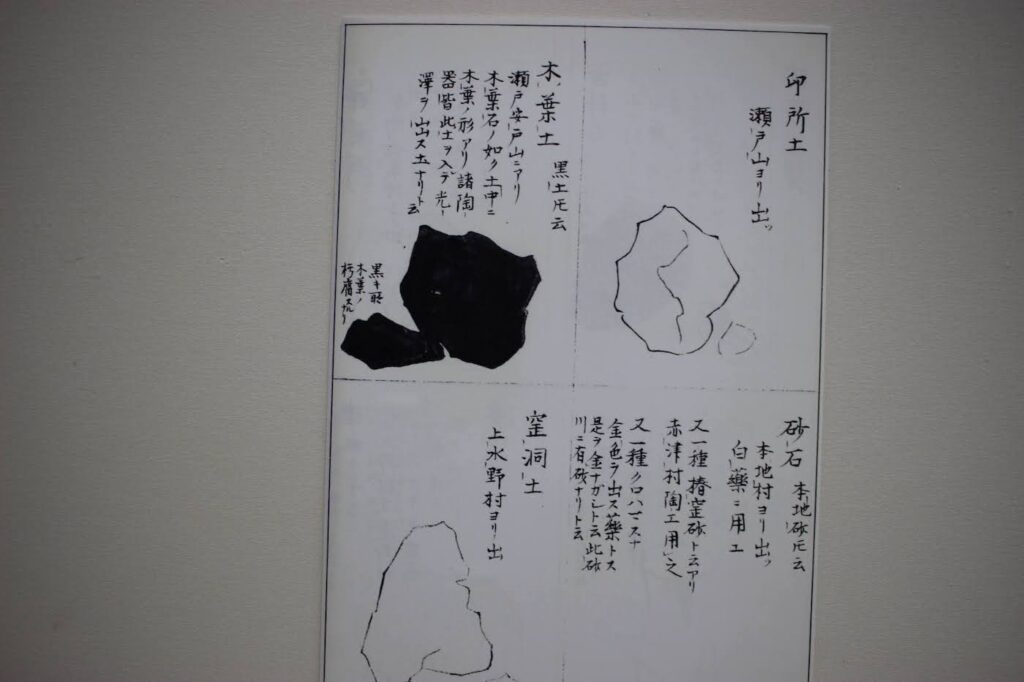 印所土
瀬戸山ヨリ出ッ
木葉土 黒土𪜈云
瀬戸安戸山ニアリ
木葉石ノ如ク土中ニ
木葉ノ形アリ諸陶
器皆此土ヲ入デ光
澤ヲ出ス土ナリト云
黒キ所
木葉ノ
朽腐
砂石 本地砂𪜈云
本地村ヨリ出ッ
白藥ニ用エ
又一種椿窑砂ト云アリ
赤津村陶工用之
又一種クロハマスナ
金色ラ出ス藥トス
是ヲ金ナガシト云此砂
川ニ有砂ナリト云
窑洞土
上水野村ヨリ出